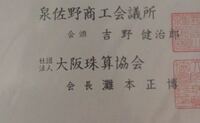 泉佐野商工会議所
会頭 吉野健治郎
社団法人 大阪珠算協会
会長 灘本正博